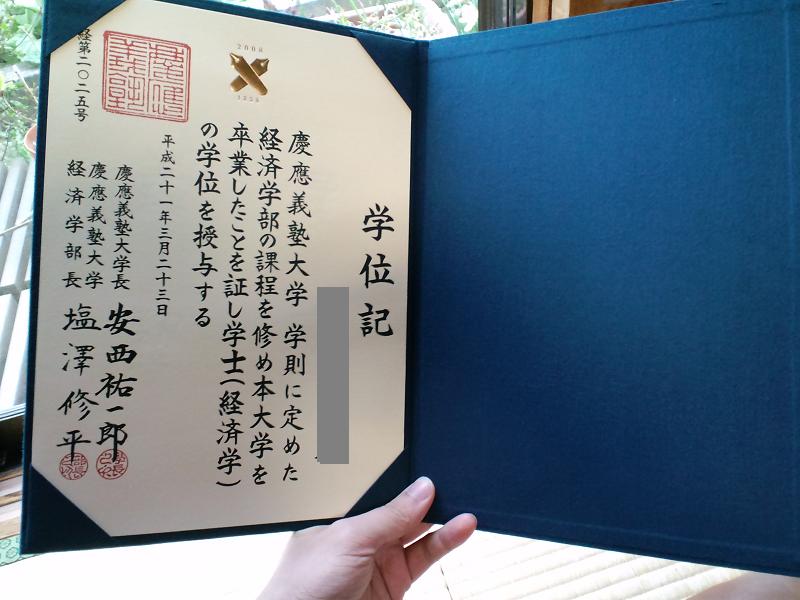 学位記
慶應義塾大学 学則に定めた
経済学部の課程を修め本大学を
卒業したことを証し学士(経済学)
の学位を授与する
平成二十一年三月二十三日
慶應義塾大学長 安西祐一郎
慶應義塾大学
経済学部長 塩澤修平
経第二〇二五号
2008
1858
慶應義塾